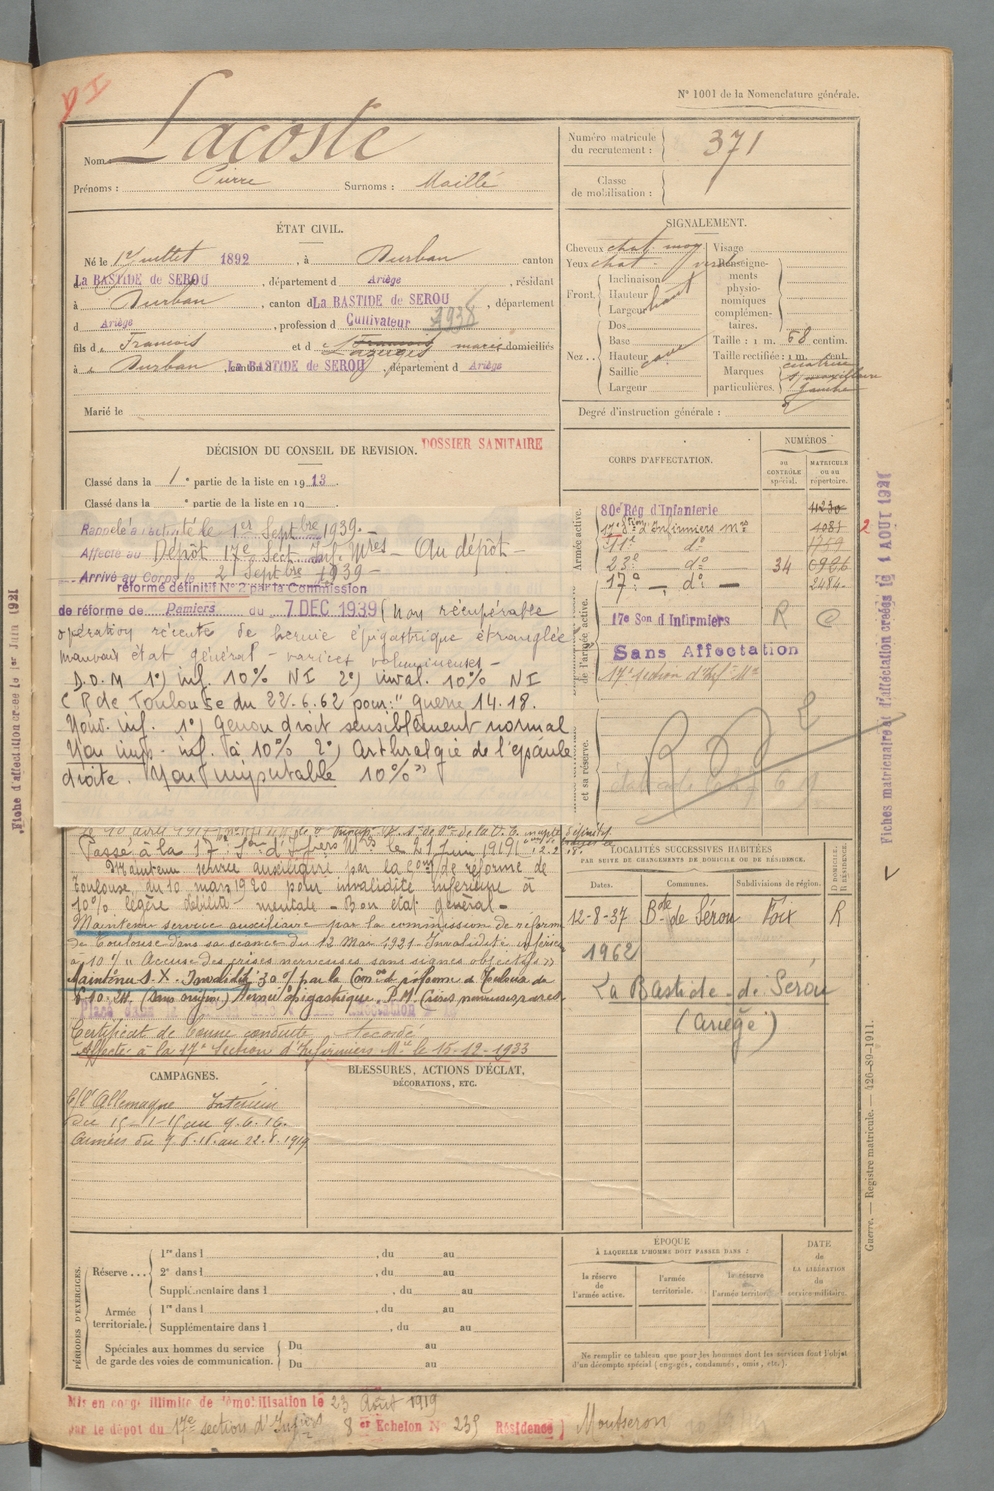 N° 1001 de la Nomenclature générale.
Nom : Lacoste
Prénoms : Pierre Surnoms : Maillé
Numéro matricule du recrutement : 371
Classe de mobilisation :
ÉTAT CIVIL.
Né le 1er Juillet 1892, à Durban canton
La BASTIDE de SEROU, département d Ariège, résidant
à Durban, canton d La BASTIDE de SEROU, département
d Ariège, profession d Cultivateur 1938
fils de Francois et d mariés domiciliés
à Durban, La BASTIDE de SEROU, département d Ariège
Marié le
SIGNALEMENT.
Cheveux chat. moy
Yeux chat.
Front. Inclinaison
Hauteur haut
Largeur
Nez Dos
Base
Hauteur
Saillie
Largeur
Visage
Renseignements physionomiques complémentaires.
Taille : 1 m. 68 centim.
Taille rectifiée : 1 m. cent.
Marques particulières. cicatrice
maxillaire
gauche
Degré d'instruction générale : 3
DÉCISION DU CONSEIL DE REVISION. DOSSIER SANITAIRE
Classé dans la 1e partie de la liste en 1913.
Classé dans la e partie de la liste en 19
Rappelé à l'activité le 1er Septbre 1939.
Affecté au Dépôt 17e Sect. Inf. Mres - Au dépôt -
Arrivé au Corps le 2 Septbre 1939 -
réformé définitif N° 2 par la Commission
de réforme de Pamiers du 7 DEC 1939 (Non récupérable
opération récente de hernie épigastrique étranglée
mauvais état général - varices volumineuses -
D.O.M 1°) inf. 10% NI 2°) inval. 10% NI
C R de Toulouse du 22.6.62 pour : "guerre 14.18.
Nouv. inf. 1°) Genou droit sensiblement normal
Non imp. inf. à 10% 2°) Arthralgie de l'épaule
droite. Non imputable 10%"
Passé à la 17e Son d'Infirs Mres le 21 juin 1919
Maintenu service auxiliaire par la Com. de réforme de
Toulouse, du 10 mars 1920 pour invalidité inférieure à
10% légère débilité mentale - Bon état général -
Maintenu service auxiliaire par la commission de réforme
de Toulouse dans sa séance du 12 Mai 1921. Invalidité inférieure
à 10% "Accuse des crises nerveuses sans signes objectifs"
Maintenu S. X. Invalidité 30% par la Com on de réforme de Toulouse du
Certificat de bonne conduite Accordé
Affecté à la 17e Section d'Infirmiers Mres le 15-12-1933
CORPS D'AFFECTATION.
NUMÉROS
au CONTRÔLE spécial.
MATRICULE ou au répertoire.
Armée active.
80e Rég d'Infanterie 11230
17e Son d'Infirmiers Mres 4081 2
11e do 1759
23e do 34
17e - do - 2484
17e Son d'Infirmiers R
Sans Affectation
17e section d'Inf. Mres
et sa réserve.
R D 2
LOCALITÉS SUCCESSIVES HABITÉES
PAR SUITE DE CHANGEMENTS DE DOMICILE OU DE RÉSIDENCE.
Dates. Communes. Subdivisions de région. D DOMICILE. R RÉSIDENCE.
12-8-37 Bde de Sérou Foix R
1962
La Bastide-de Serou
(Ariège)
CAMPAGNES.
C/ l'Allemagne Intérieur
Du 15-1-15 au 9.6.16.
Armées du 7.6.16 au 22.8.1919
BLESSURES, ACTIONS D'ÉCLAT,
DÉCORATIONS, ETC.
PÉRIODES D'EXERCICES.
Réserve...
1re dans l , du au
2e dans l , du au
Supplémentaire dans l , du au
Armée territoriale.
1re dans l , du au
Supplémentaire dans l , du au
Spéciales aux hommes du service de garde des voies de communication.
Du au
Du au
ÉPOQUE
À LAQUELLE L'HOMME DOIT PASSER DANS :
la réserve de l'armée active.
l'armée territoriale.
la réserve de l'armée territoriale.
DATE de LA LIBÉRATION du service militaire.
Ne remplir ce tableau que pour les hommes dont les services font l'objet
d'un décompte spécial (engagés, condamnés, omis, etc.).
Mis en congé illimité de démobilisation le 23 Août 1919
par le dépôt du 17e section d'Infirs 8er Echelon N° 235 Résidence Montseron
Guerre. — Registre matricule. — 426-89-1911.
Fiches matricule et d'affectation créées le 1 AOUT 1921
Fiche d'affectation créée le 1er Juin 1921